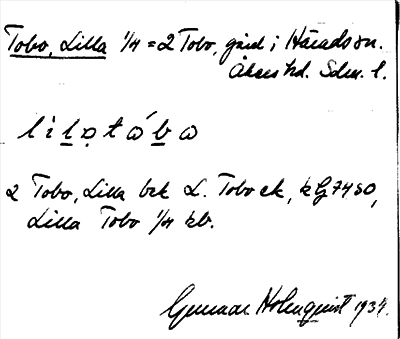 Tobo, Lilla 1/4 = 2 Tobo, gård i Härads sn.
Åkers hd. Södm. l.
lìl̲ạtǻb̲a
2 Tobo, Lilla bek L. Tobo ek, k G7450,
Lilla Tobo 1/4 kb.
Gunnar Holmquist 1934.